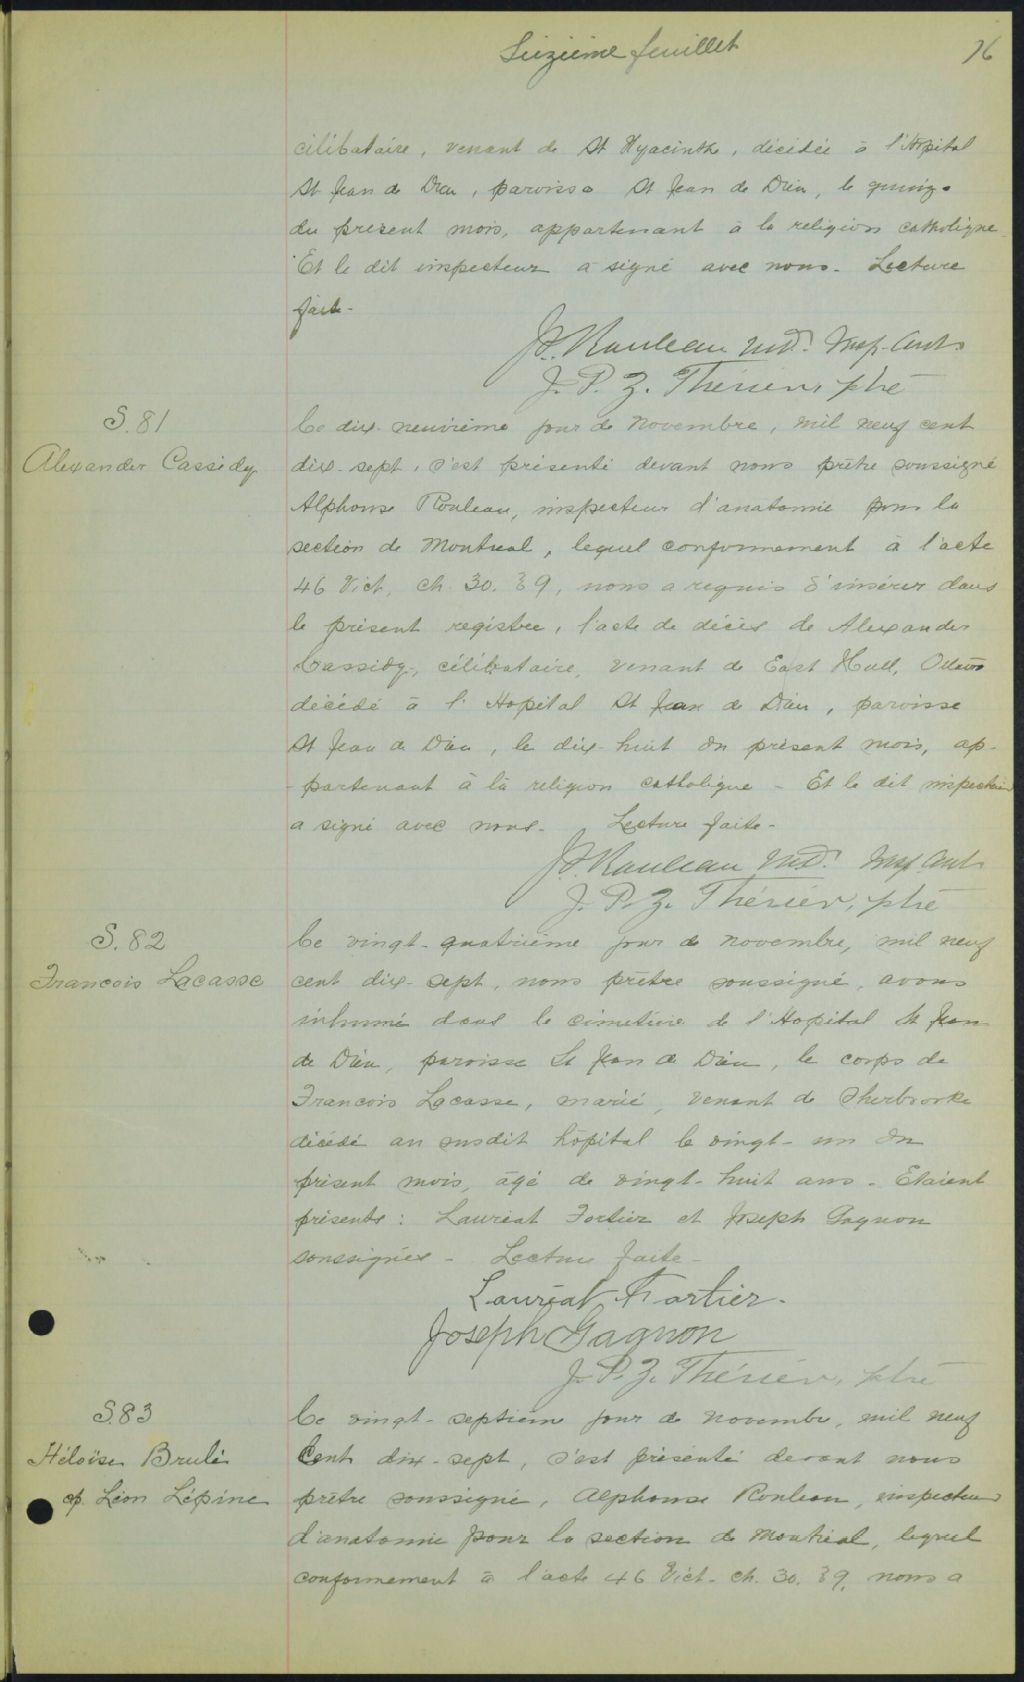 Seizième feuillet 16
célibataire, venant de St Hyacinthe, décédée à l'Hôpital
St Jean de Dieu, paroisse St Jean de Dieu, le quinze
du présent mois, appartenant à la religion catholique
Et le dit inspecteur a signé avec nous. Lecture
faite.
Rouleau M.D. Insp. Anat.
J. P. Z. Thérien, ptre
S. 81
Alexander Cassidy
Ce dix-neuvième jour de Novembre, mil neuf cent
dix-sept, s'est présenté devant nous prêtre soussigné
Alphonse Rouleau, inspecteur d'anatomie pour la
section de Montreal, lequel conformement à l'acte
46 Vict. ch. 30. §9, nous a requis d'insérer dans
le présent registre, l'acte de décès de Alexander
Cassidy, célibataire, venant de East Hull, Ottawa
décédé à l'Hopital St Jean de Dieu, paroisse
St Jean de Dieu, le dix-huit du présent mois, ap-
partenant à la religion catholique - Et le dit inspecteur
a signé avec nous. Lecture faite -
Rouleau M.D. Insp. Anat.
J. P. Z. Thérien, ptre
S. 82
Francois Lacasse
Ce vingt-quatrième jour de novembre, mil neuf
cent dix-sept, nous prêtre soussigné, avons
inhumé dans le cimetière de l'Hopital St Jean
de Dieu, paroisse St Jean de Dieu, le corps de
Francois Lacasse, marié, venant de Sherbrooke
décédé au susdit hôpital le vingt-un du
présent mois, âgé de vingt-huit ans. Etaient
présents: Lauréat Fortier et Joseph Gagnon
soussignés - Lecture faite -
Lauréat Fortier.
Joseph Gagnon
J. P. Z. Thérien, ptre
S. 83
Héloïse Brulé
ép. Léon Lépine
Ce vingt-septième jour de novembre, mil neuf
Cent dix-sept, s'est présenté devant nous
prêtre soussigné, Alphonse Rouleau, inspecteur
d'anatomie pour la section de Montréal, lequel
conformement à l'acte 46 Vict. ch. 30. §9, nous a